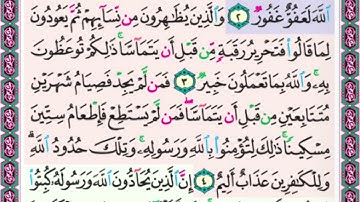 ٱللَّهَ لَعَفُوٌّ غَفُورٌ ٢ وَٱلَّذِينَ يُظَٰهِرُونَ مِن نِّسَآئِهِمْ ثُمَّ يَعُودُونَ
لِمَا قَالُوا۟ فَتَحْرِيرُ رَقَبَةٍ مِّن قَبْلِ أَن يَتَمَآسَّا ۚ ذَٰلِكُمْ تُوعَظُونَ
بِهِۦ ۚ وَٱللَّهُ بِمَا تَعْمَلُونَ خَبِيرٌ ٣ فَمَن لَّمْ يَجِدْ فَصِيَامُ شَهْرَيْنِ
مُتَتَابِعَيْنِ مِن قَبْلِ أَن يَتَمَآسَّا ۖ فَمَن لَّمْ يَسْتَطِعْ فَإِطْعَامُ سِتِّينَ
مِسْكِينًا ۚ ذَٰلِكَ لِتُؤْمِنُوا۟ بِٱللَّهِ وَرَسُولِهِۦ ۚ وَتِلْكَ حُدُودُ ٱللَّهِ ۗ
وَلِلْكَٰفِرِينَ عَذَابٌ أَلِيمٌ ٤ إِنَّ ٱلَّذِينَ يُحَآدُّونَ ٱللَّهَ وَرَسُولَهُۥ كُبِتُوا۟